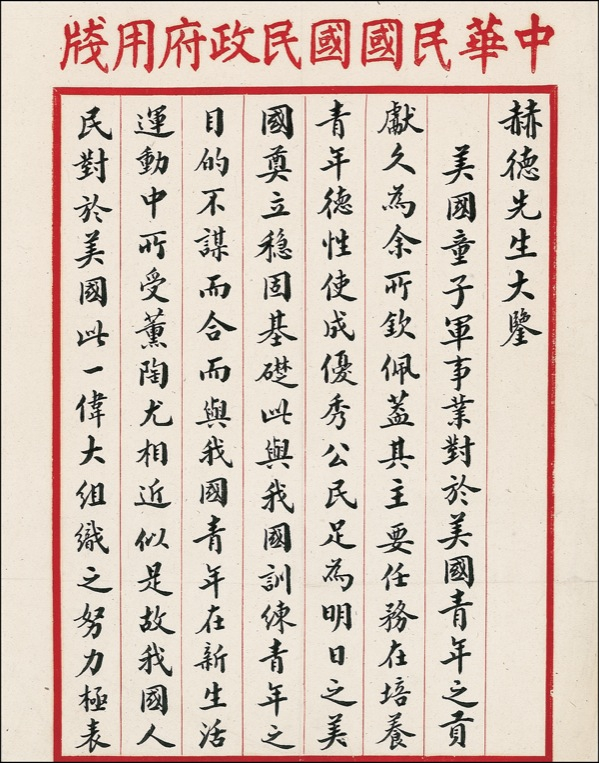 中華民國國民政府用牋
赫德先生大鑒
美國童子軍事業對於美國青年之貢
獻久為余所欽佩蓋其主要任務在培養
青年德性使成優秀公民足為明日之美
國奠立穩固基礎此與我國訓練青年之
目的不謀而合而與我國青年在新生活
運動中所受薰陶尤相近似是故我國人
民對於美國此一偉大組織之努力極表